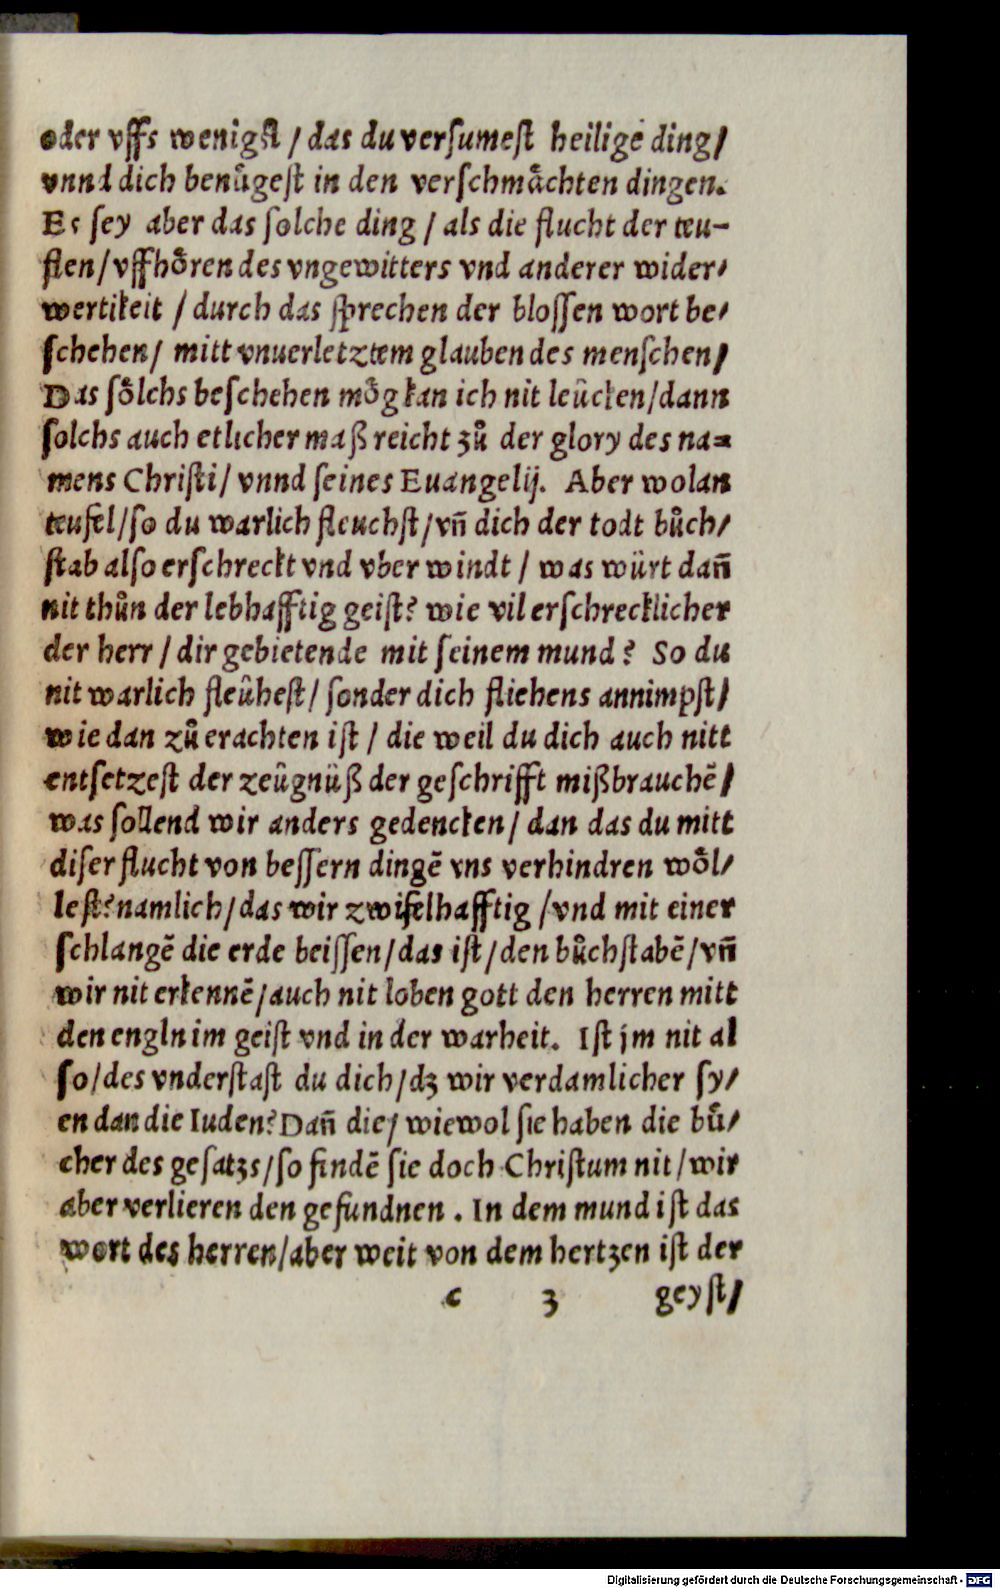 oder vffs wenigſt / das du verſumeſt heilige ding/
vnnd dich benuͤgeſt in den verſchmaͤchten dingen.
Es ſey aber das ſolche ding / als die flucht der teu-
flen/vffhoͤren des vngewitters vnd anderer wider/
wertikeit / durch das ſprechen der bloſſen wort be/
ſchehen/ mitt vnuerletztem glauben des menſchen/
Das ſoͤlchs beſchehen moͤg kan ich nit leücken/dann
ſolchs auch etlicher maß reicht zuͦ der glory des na=
mens Chriſti/ vnnd ſeines Euangelij. Aber wolan
teufel/ſo du warlich fleuchſt/vñ dich der todt buͦch/
ſtab alſo erſchreckt vnd vber windt / was würt dañ
nit thuͦn der lebhafftig geiſt? wie vil erſchrecklicher
der herr / dir gebietende mit ſeinem mund? So du
nit warlich fleüheſt/ ſonder dich fliehens annimpſt/
wie dan zuͦ erachten iſt / die weil du dich auch nitt
entſetzeſt der zeügnüß der geſchrifft mißbrauchẽ/
was ſollend wir anders gedencken/ dan das du mitt
diſer flucht von beſſern dingẽ vns verhindren woͤl/
leſt?namlich/das wir zwifelhafftig /vnd mit einer
ſchlangẽ die erde beiſſen/das iſt/den buͦchſtabẽ/vñ
wir nit erkennẽ/auch nit loben gott den herren mitt
den engln im geiſt vnd in der warheit. Iſt jm nit al
ſo/des vnderſtaſt du dich/dꝫ wir verdamlicher ſy/
en dan die Iuden?Dañ die/ wiewol ſie haben die buͤ/
cher des geſatzs/ſo findẽ ſie doch Chriſtum nit/wir
aber verlieren den gefundnen . In dem mund iſt das
wort des herren/aber weit von dem hertzen iſt der
c 3 geyſt/
Digitalisierung gefördert durch die Deutsche Forschungsgemeinschaft - DFG